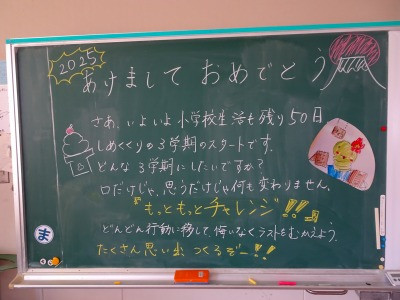 2025
あけまして おめでとう
さあ、いよいよ小学校生活も残り50日
しめくくりの3学期のスタートです。
どんな3学期にしたいですか?
口だけじゃ、思うだけじゃ何も変わりません。
『もっともっとチャレンジ!!』
どんどん行動に移して悔いなくラストをむかえよう。
たくさん思い出つくるぞー!!
ま